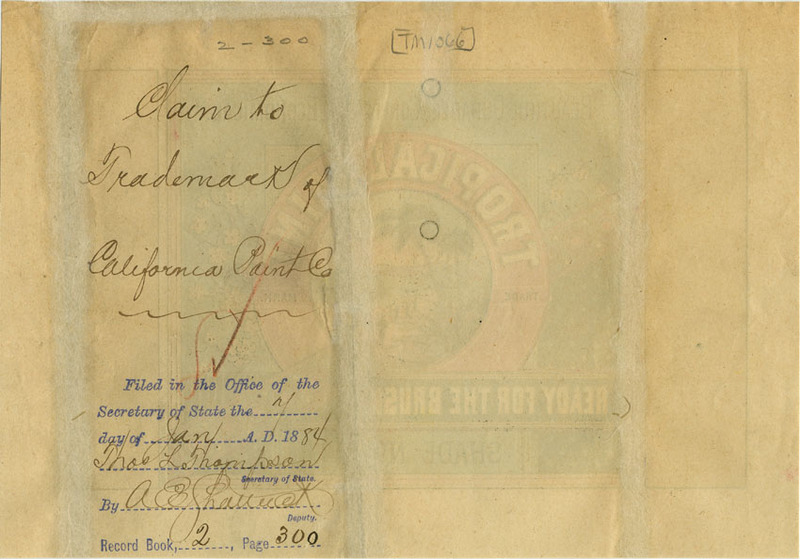 2-300
TM1066
Claim to
Trademark of
California Paint Co
Filed in the Office of the
Secretary of State the 7
day of Jan A. D. 1884
Thos L Thompson
Secretary of State.
By A E
Deputy.
Record Book, 2, Page 300
TROPICAL
TRADE
READY FOR THE BRUS
SHADE NO